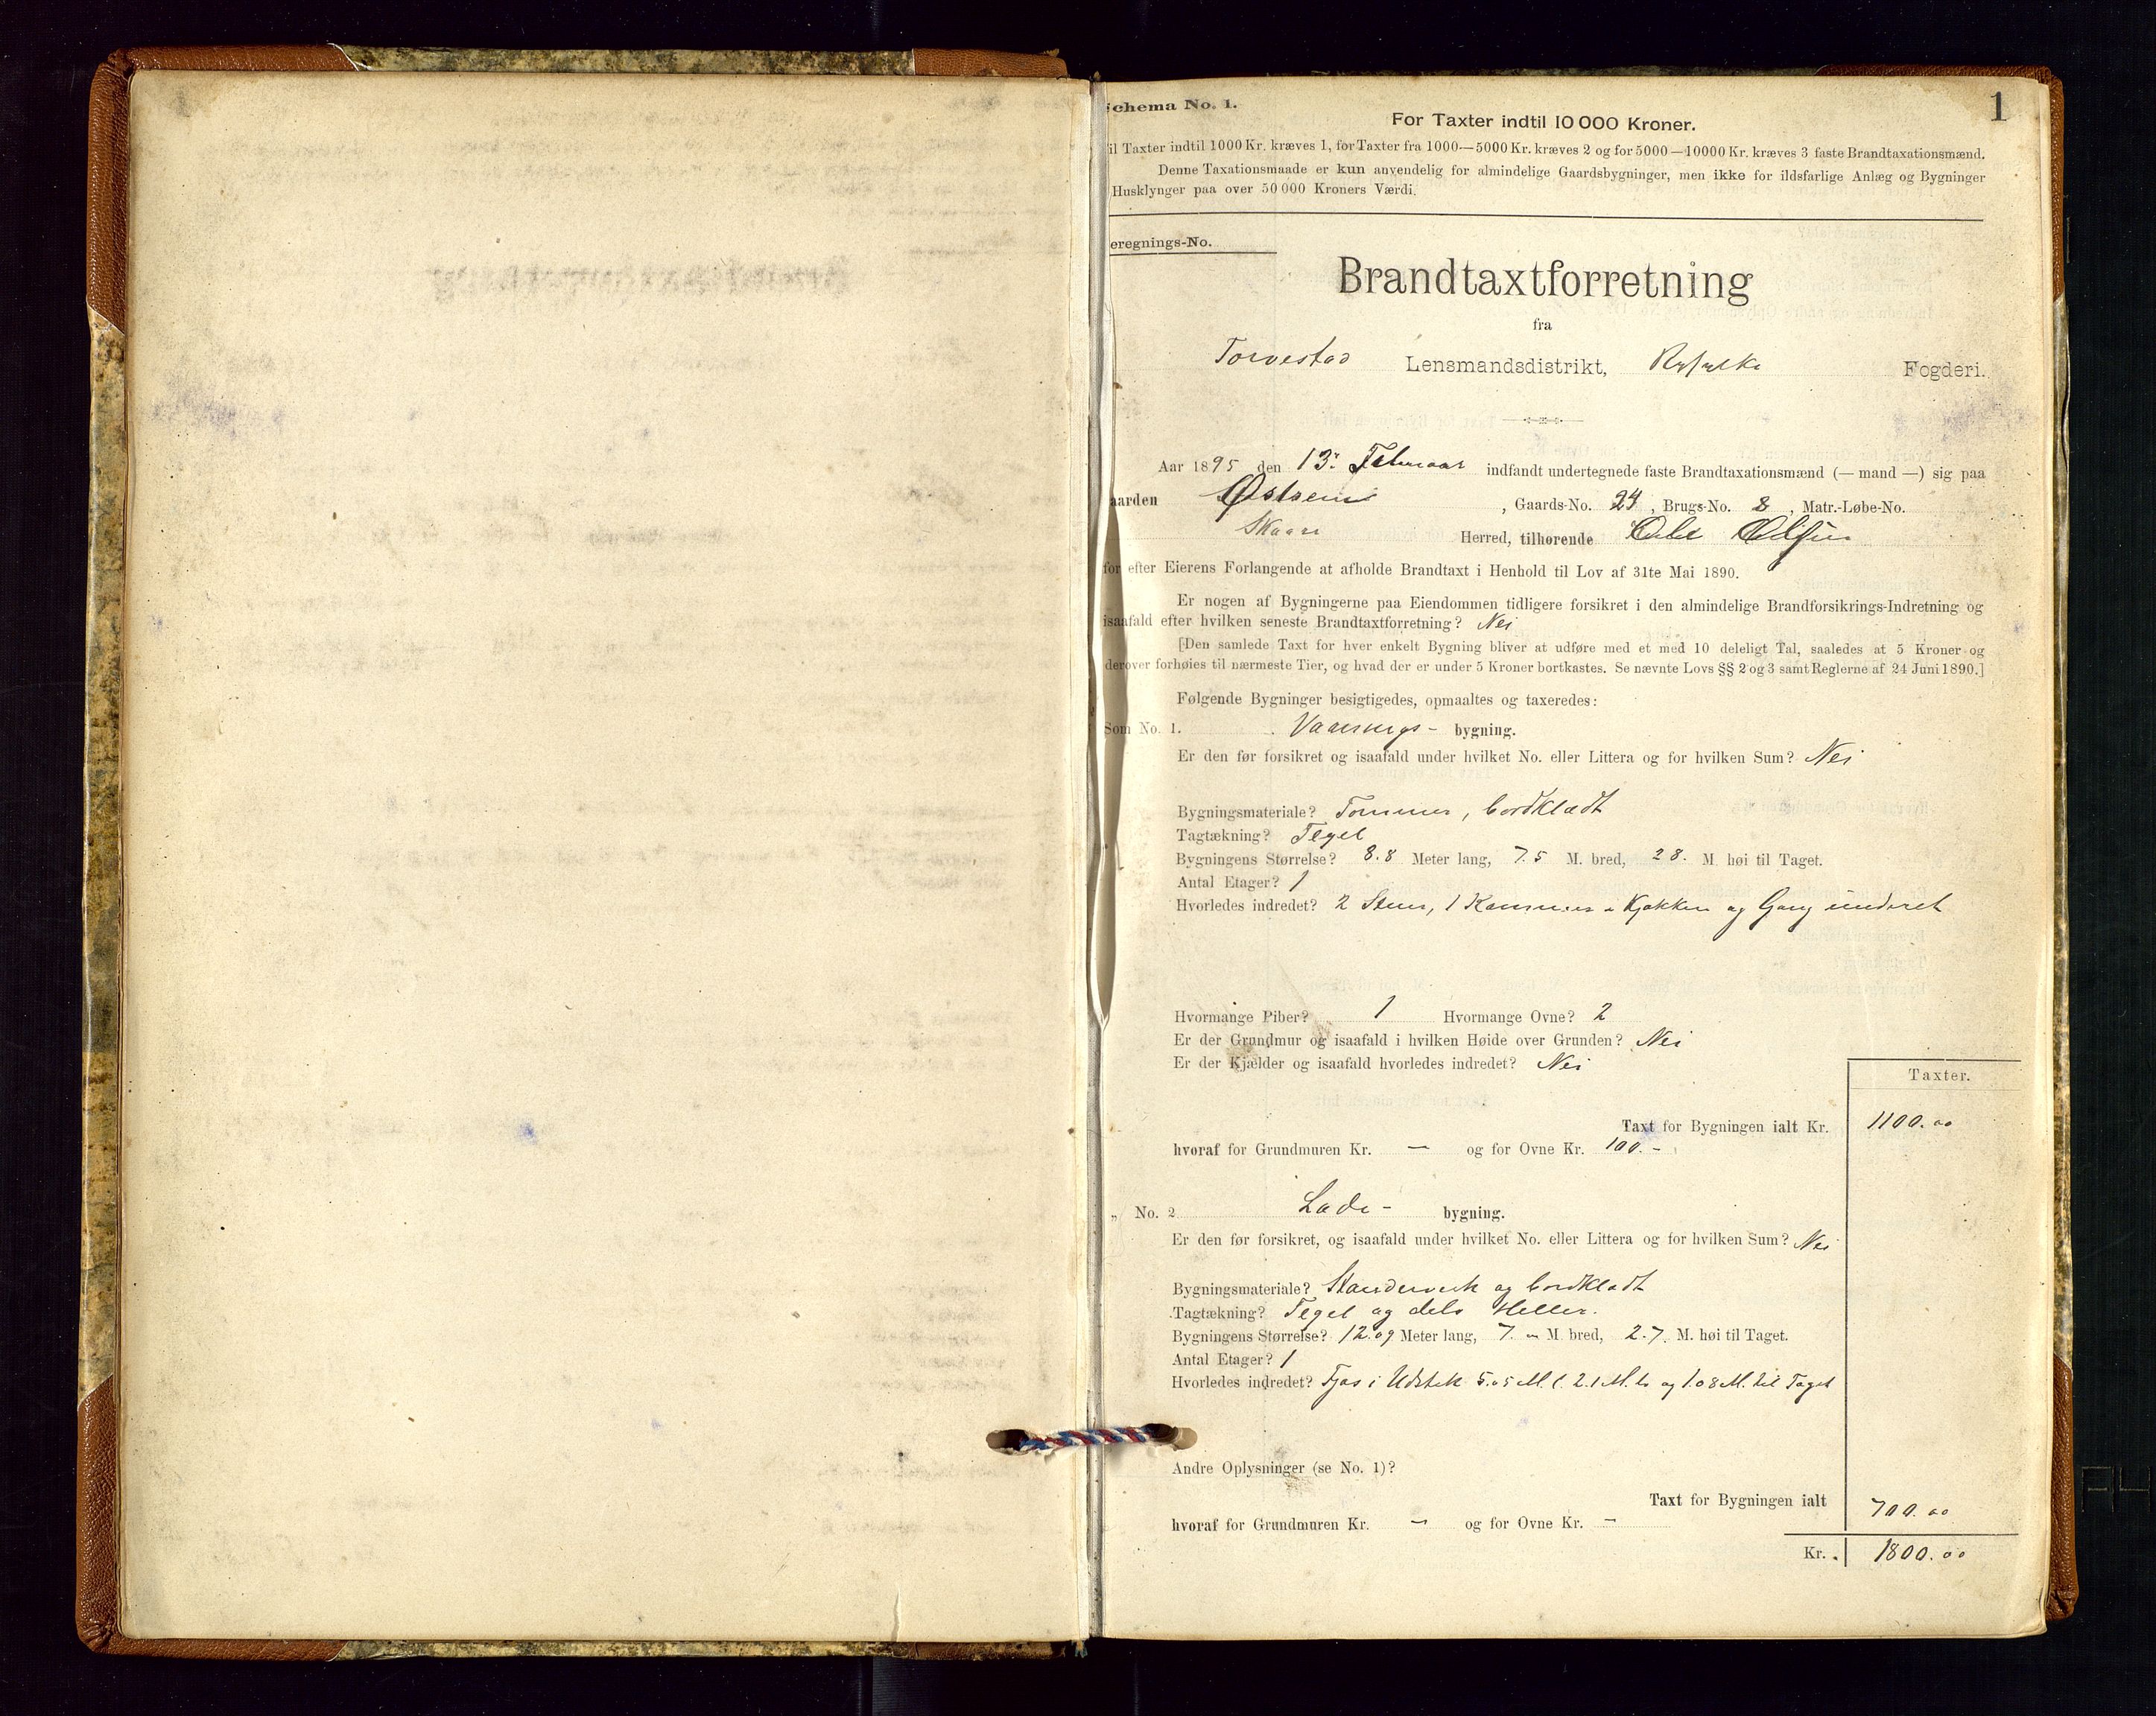 1
Schema No. 1.
For Taxter indtil 10 000 Kroner.
il Taxter indtil 1000 Kr. kræves 1, for Taxter fra 1000—5000 Kr. kræves 2 og for 5000—10000 Kr. kræves 3 faste Brandtaxationsmænd.
Denne Taxationsmaade er kun anvendelig for almindelige Gaardsbygninger, men ikke for ildsfarlige Anlæg og Bygninger
Husklynger paa over 50 000 Kroners Værdi.
eregnings-No.
Brandtaxtforretning
fra
Torvestad Lensmandsdistrikt, Ryfylke Fogderi.
Aar 1895 den 13. Februar indfandt undertegnede faste Brandtaxationsmænd (— mand —) sig paa
aarden Østrem, Gaards-No. 24, Brugs-No. 8, Matr.-Løbe-No.
Skaare Herred, tilhørende Ole Olsen
for efter Eierens Forlangende at afholde Brandtaxt i Henhold til Lov af 31te Mai 1890.
Er nogen af Bygningerne paa Eiendommen tidligere forsikret i den almindelige Brandforsikrings-Indretning og
isaafald efter hvilken seneste Brandtaxtforretning? Nei
[Den samlede Taxt for hver enkelt Bygning bliver at udføre med et med 10 deleligt Tal, saaledes at 5 Kroner og
derover forhøies til nærmeste Tier, og hvad der er under 5 Kroner bortkastes. Se nævnte Lovs §§ 2 og 3 samt Reglerne af 24 Juni 1890.]
Følgende Bygninger besigtigedes, opmaaltes og taxeredes:
Som No. 1. Vaanings- bygning.
Er den før forsikret og isaafald under hvilket No. eller Littera og for hvilken Sum? Nei
Bygningsmateriale? Tømmer, bordklædt
Tagtækning? Tegel
Bygningens Størrelse? 8.8 Meter lang, 7.5 M. bred, 28. M. høi til Taget.
Antal Etager? 1
Hvorledes indredet? 2 Stuer, 1 Kammer Kjøkken og Gang
Hvormange Piber? 1 Hvormange Ovne? 2
Er der Grundmur og isaafald i hvilken Høide over Grunden? Nei
Er der Kjælder og isaafald hvorledes indredet? Nei
Taxter.
Taxt for Bygningen ialt Kr. 1100.00
hvoraf for Grundmuren Kr. — og for Ovne Kr. 100.-
„ No. 2 Lade- bygning.
Er den før forsikret, og isaafald under hvilket No. eller Littera og for hvilken Sum? Nei
Bygningsmateriale? Standerverk og bordklædt
Tagtækning? Tegel og dels Heller.
Bygningens Størrelse? 12.09 Meter lang, 7. „ M. bred, 2.7. M. høi til Taget.
Antal Etager? 1
Hvorledes indredet? Fjøs i Udstik 5.05 M. l. 2.1 M. b. og 1.08 M. til Taget
Andre Oplysninger (se No. 1)?
Taxt for Bygningen ialt 700.00
hvoraf for Grundmuren Kr. — og for Ovne Kr. —
Kr. 1800.00